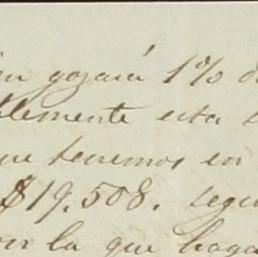 gozará 1% d
lemente esta
que tenemos en
$19.508. segu
on la que haga